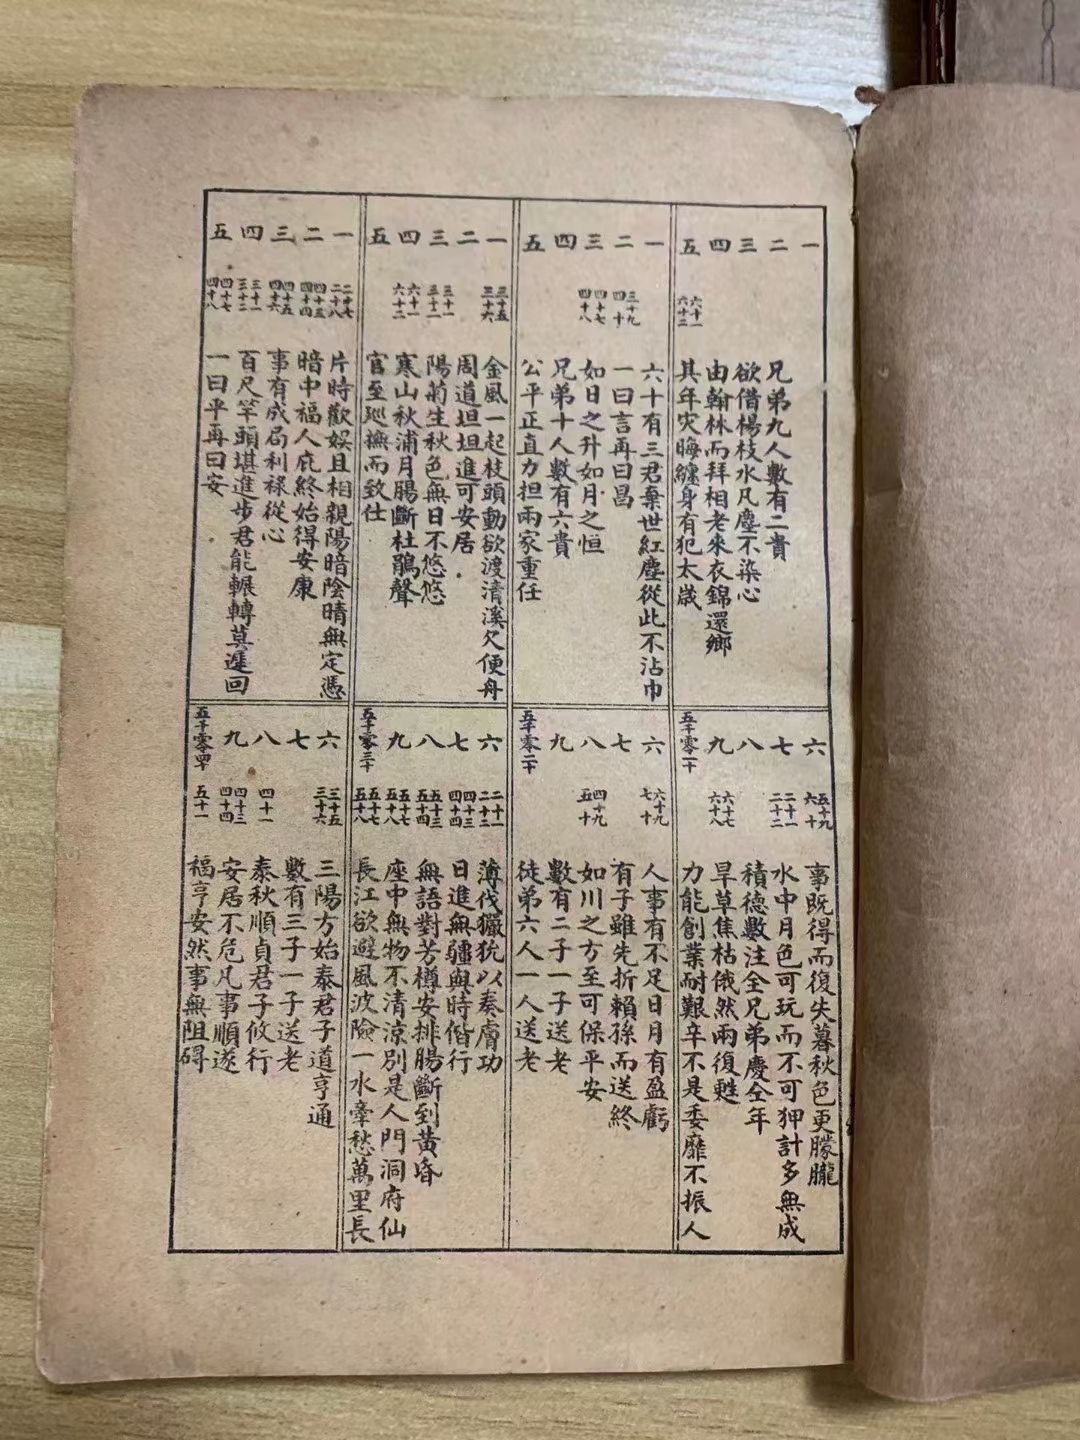 一
二 兄弟九人數有二貴
三 欲借楊枝水凡塵不染心
四 由翰林而拜相老來衣錦還鄉
五 六十一 六十二 其年灾晦纏身有犯太歲
六 五十九 六十 事既得而復失暮秋色更朦朧
七 二十一 二十二 水中月色可玩而不可狎計多無成
八 積德數注全兄弟慶全年
九 六十七 六十八 旱草焦枯俄然雨復甦
五千零一十 力能創業耐艱辛不是委靡不振人
一 六十有三君棄世紅塵從此不沾巾
二 三十九 四十 一曰言再曰昌
三 四十七 四十八 如日之升如月之恒
四 兄弟十人數有六貴
五 公平正直力担兩家重任
六 六十九 七十 人事有不足日月有盈虧
七 有子雖先折賴孫而送終
八 四十九 五十 如川之方至可保平安
九 數有二子一子送老
五千零二十 徒弟六人一人送老
一 三十五 三十六 金風一起枝頭動欲渡清溪欠便舟
二 周道坦坦進可安居
三 三十一 三十二 陽菊生秋色無日不悠悠
四 六十一 六十二 寒山秋浦月腸斷杜鵑聲
五 官至巡撫而致仕
六 二十一 二十二 薄伐玁狁以奏膚功
七 四十三 四十四 日進無疆與時偕行
八 五十三 五十四 無語對芳樽安排腸斷到黃昏
九 五十七 五十八 座中無物不清涼別是人門洞府仙
五千零三十 五十七 五十八 長江欲避風波險一水牽愁萬里長
一 二十七 二十八 片時歡娛且相親陽暗陰晴無定憑
二 四十三 四十四 暗中福人庇終始得安康
三 四十五 四十六 事有成局利祿從心
四 三十一 三十二 百尺竿頭堪進步君能輾轉莫遲回
五 四十七 四十八 一曰平再曰安
六 三十五 三十六 三陽方始泰君子道亨通
七 數有三子一子送老
八 四十一 泰秋順貞君子攸行
九 四十三 四十四 安居不危凡事順遂
五千零四十 五十一 福亨安然事無阻碍